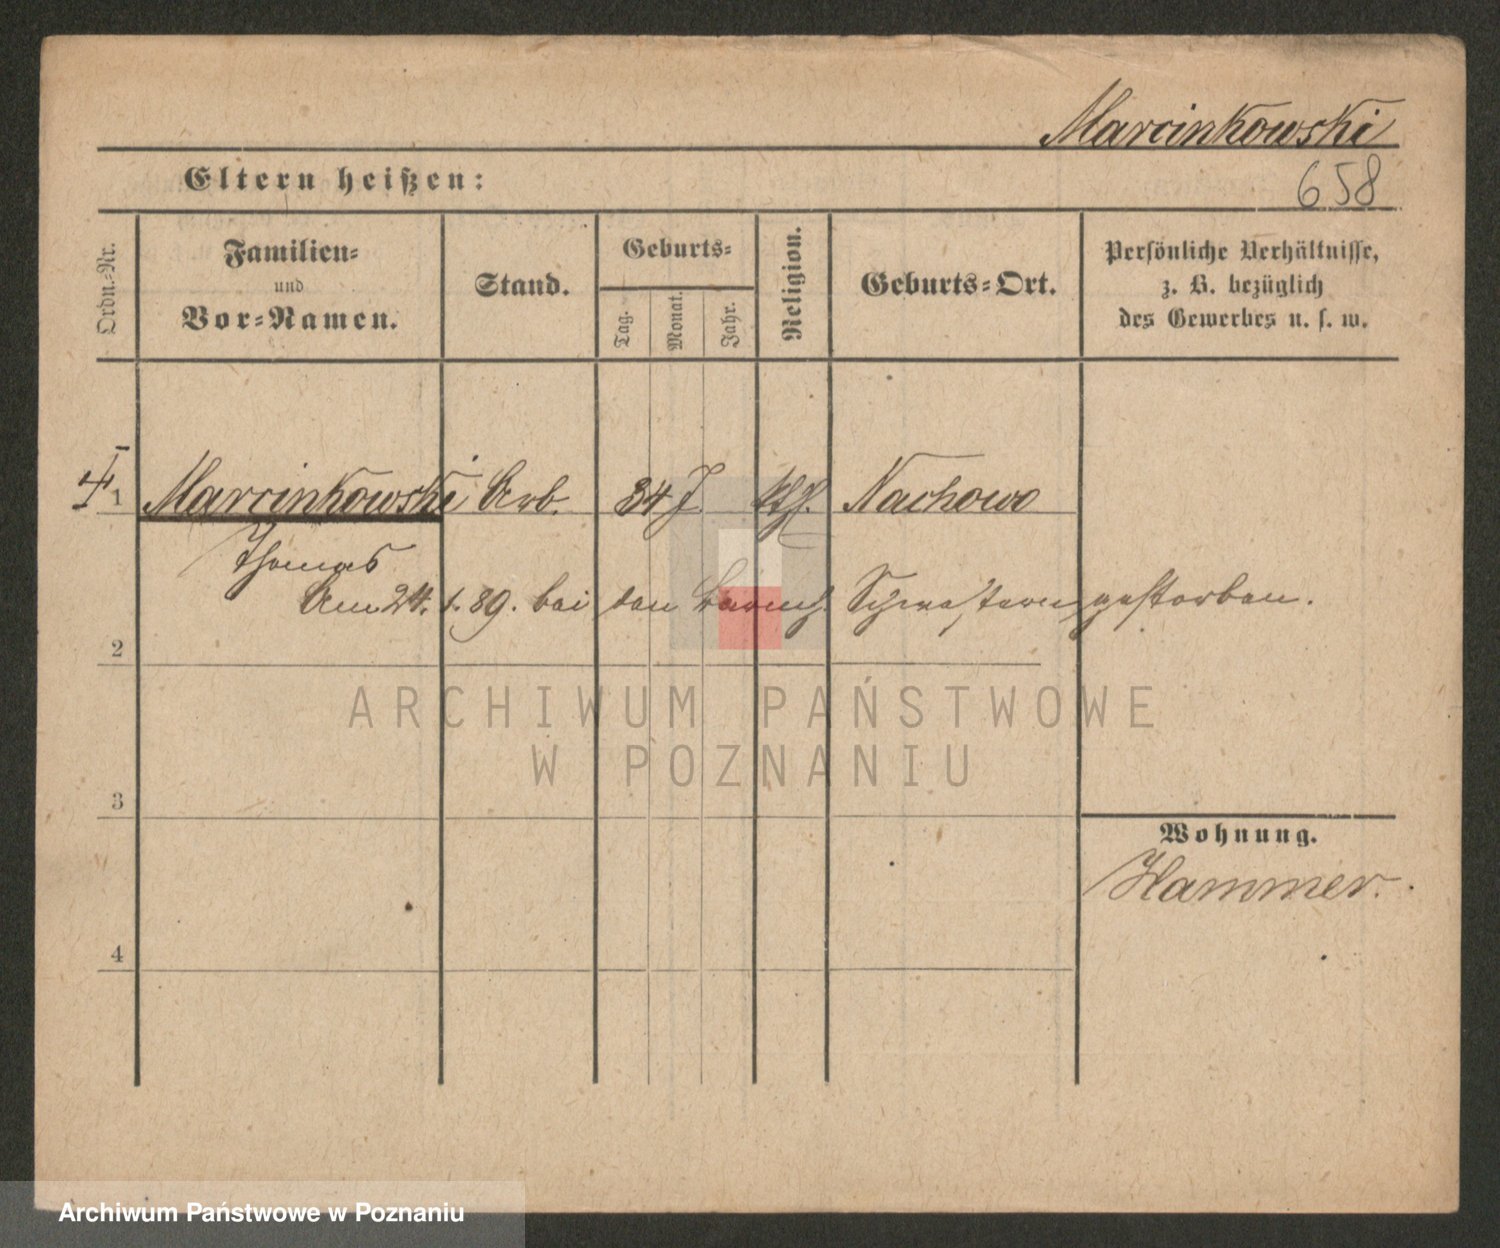 Marcinkowski
Eltern heißen:
658
Ordn.-Nr.
Familien-
und
Vor-Namen.
Stand.
Geburts-
Tag.
Monat.
Jahr.
Religion.
Geburts-Ort.
Persönliche Verhältnisse,
z. B. bezüglich
des Gewerbes u. s. w.
1 Marcinkowski Arb. 34 J. kth. Nachowo
Thomas
Am 24. 1. 89. bei den barmh. Schwestern gestorben.
2
ARCHIWUM PAŃSTWOWE
W POZNANIU
3
Wohnung.
Hammer.
4
Archiwum Państwowe w Poznaniu